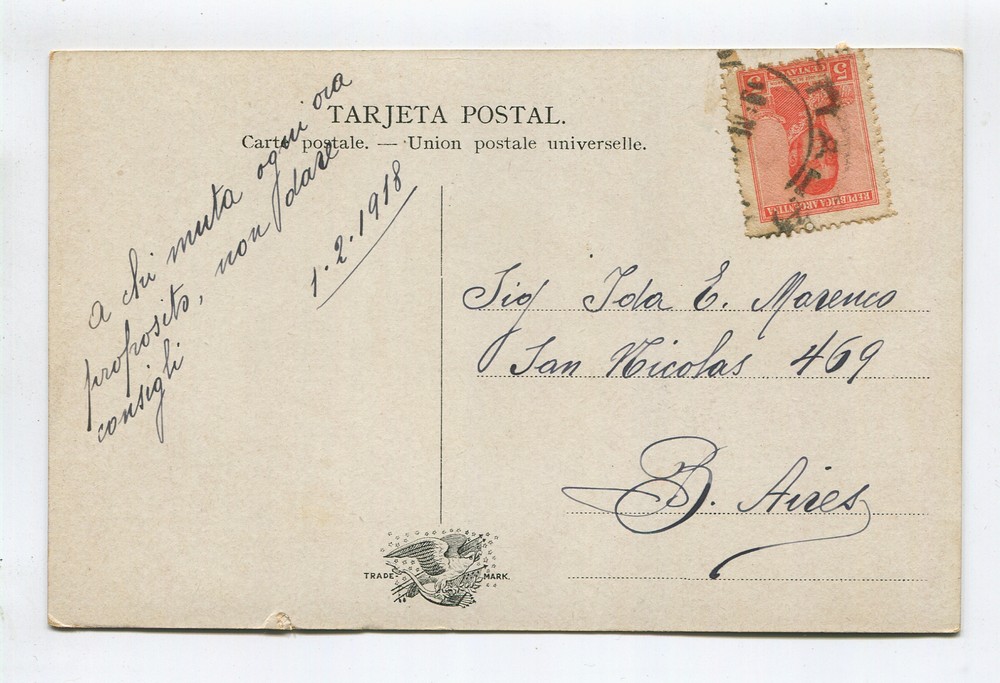 TARJETA POSTAL.
Carte postale. — Union postale universelle.
a chi muta ogni ora
proposito, non dare
consigli
1·2·1918
5 CENTAVOS 5
REPUBLICA ARGENTINA
Sig Ida E. Marenco
San Nicolas 469
B. Aires
TRADE MARK.